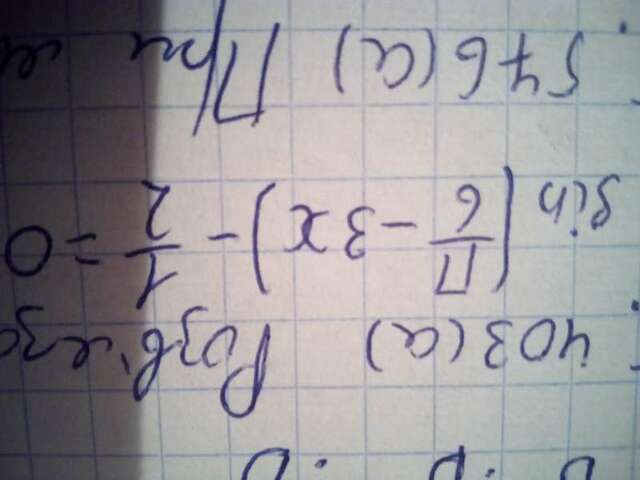 403(а) Розв'яз
sin (π/6 - 3x) - 1/2 = 0
546(а) При